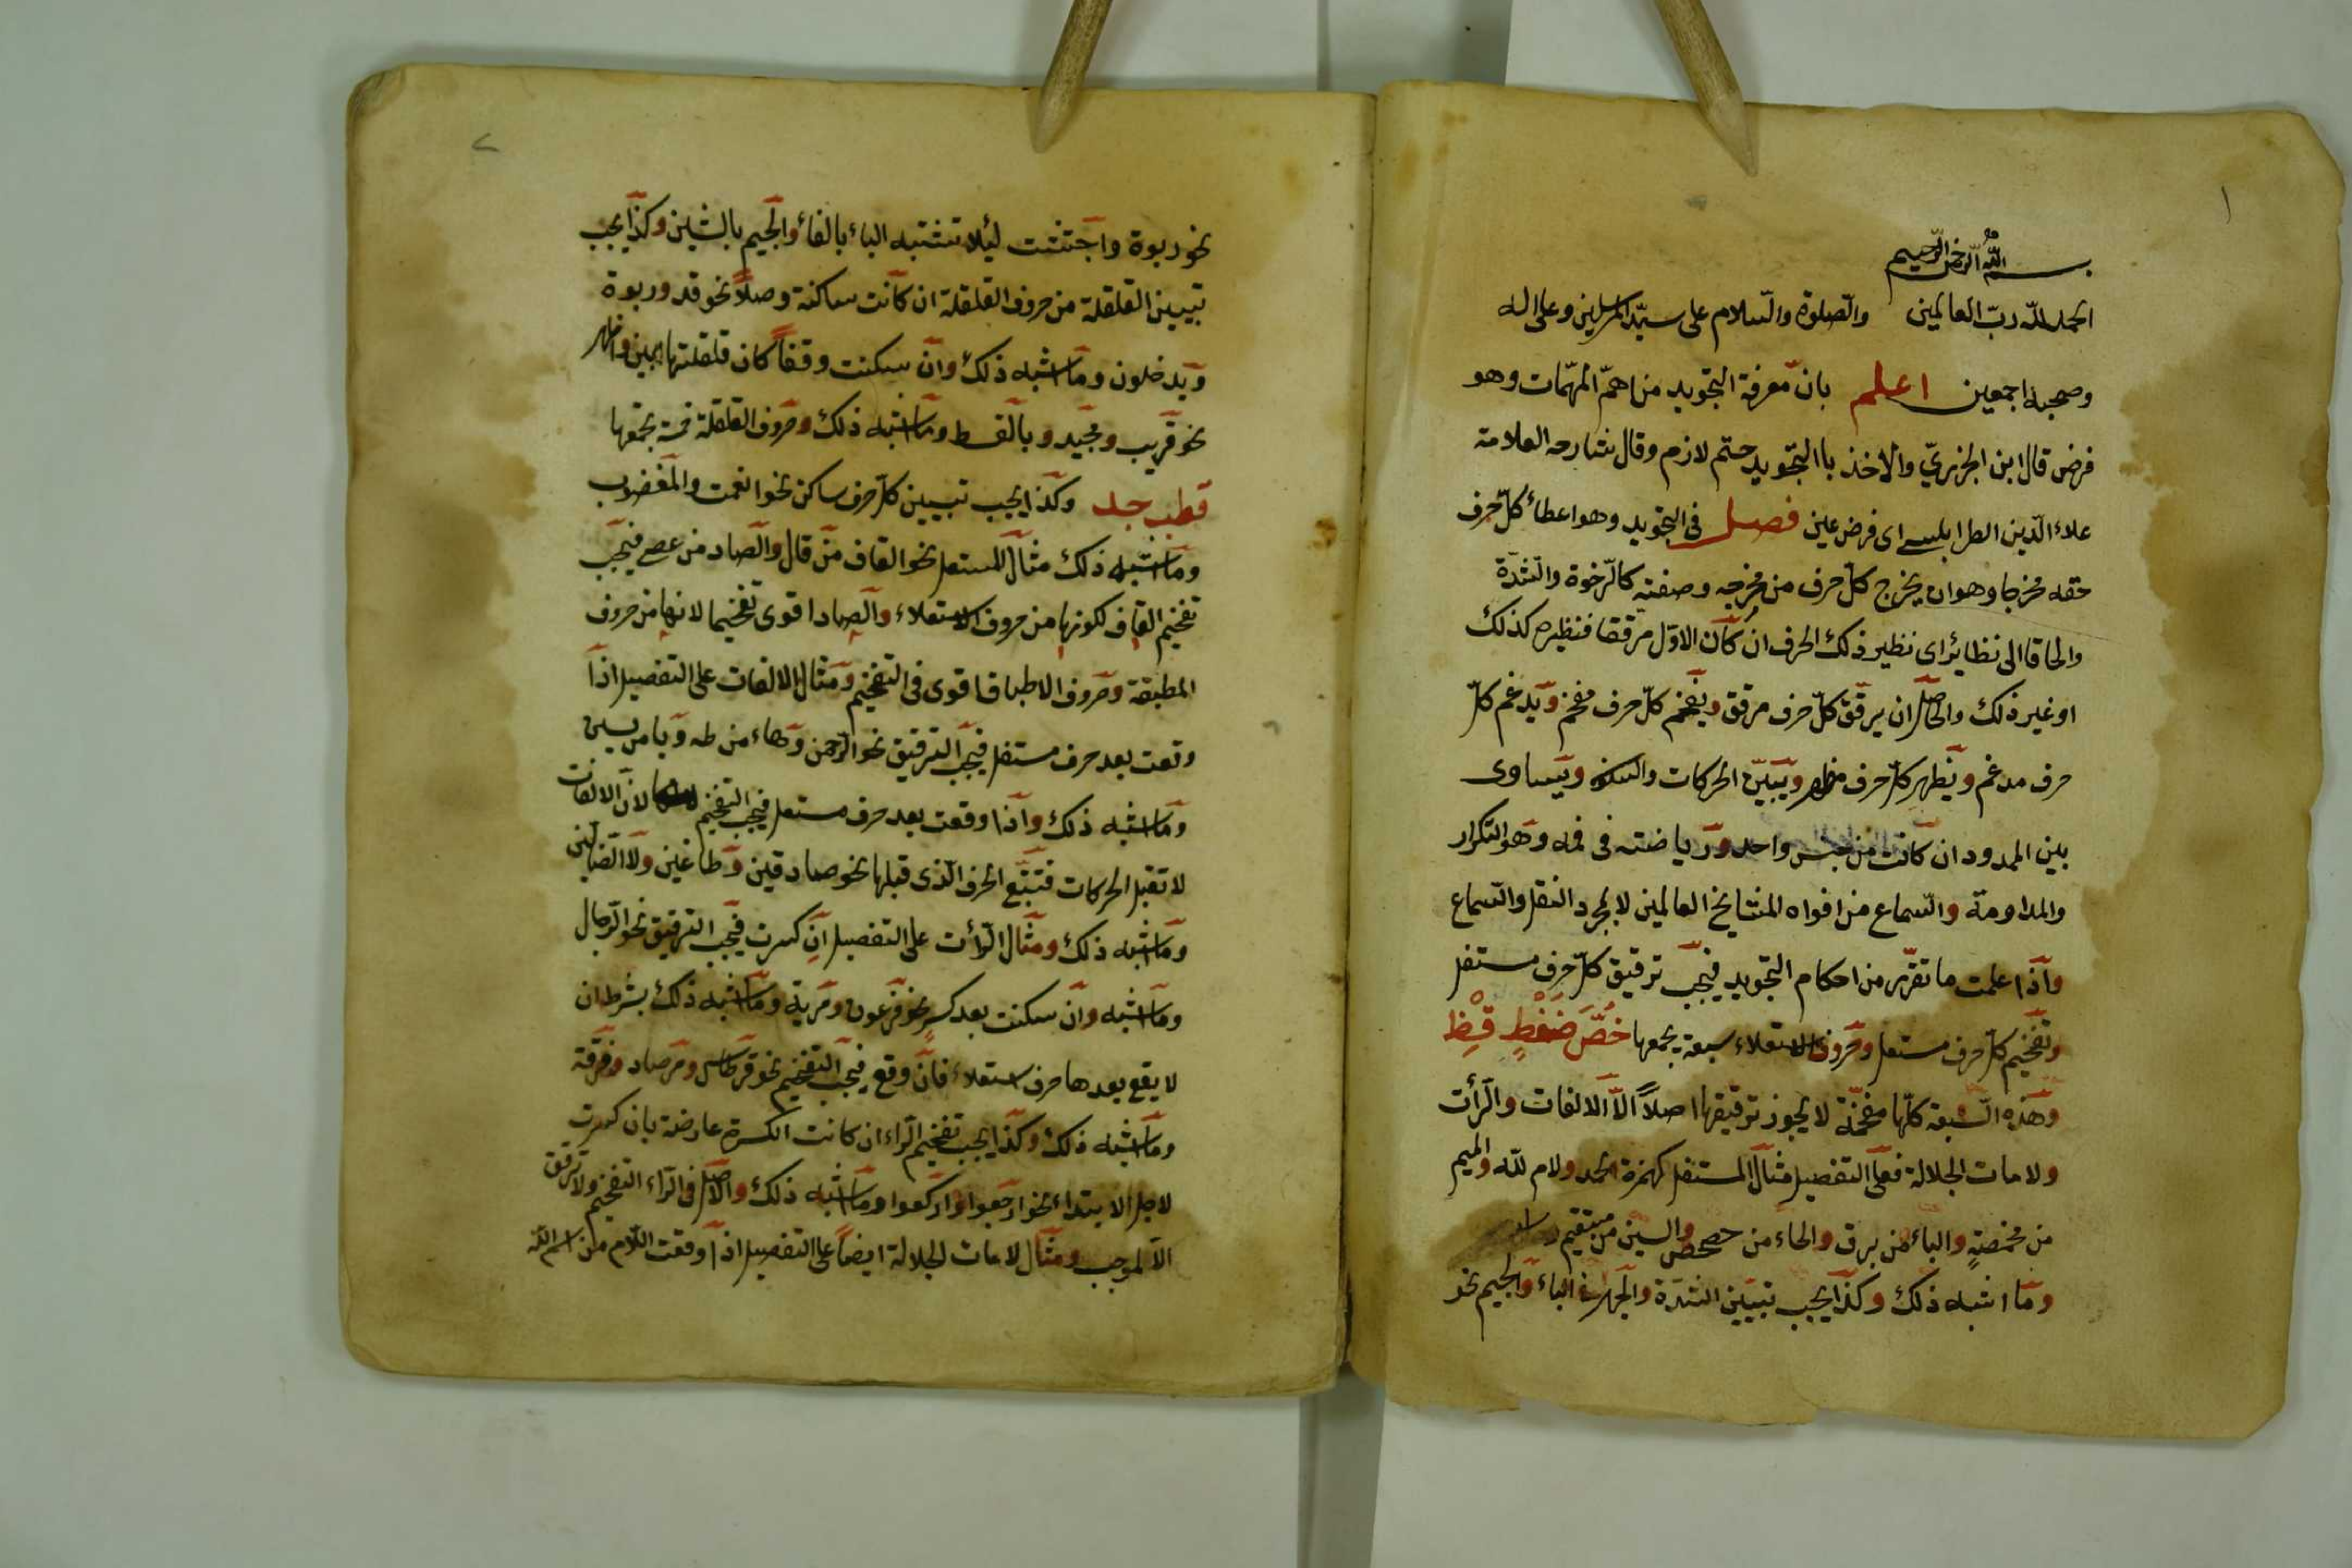 ١
بسم الله الرحمن الرحيم
الحمد لله ربّ العالمين والصّلوة والسّلام على سيّد المرسلين وعلى اله
وصحبه اجمعين اعلم بانّ معرفة التجويد من اهمّ المهمّات وهو
فرض قال ابن الجزريّ والاخذ باالتّجويد حتم لازم وقال شارحه العلامة
علاء الدّين الطرابلسى اى فرض عين فصل فى التجويد وهو اعطاء كلّ حرف
حقه مخرجا وهو ان يخرج كلّ حرف من مخرجه وصفته كالرّخوة والشّدّة
والحاقا الى نظائر اى نظير ذلك الحرف ان كان الاوّل مرققا فنظيره كذلك
او غير ذلك والحاصل ان يرقّق كلّ حرف مرقق ويفخم كلّ حرف مفخم ويدغم كلّ
حرف مدغم ويظهر كلّ حرف مظهر ويبيّن الحركات والسكنة ويساوى
بين الممدود ان كانت من جنس واحد ورياضته فى فمه وهو التكرار
والمداومة والسّماع من افواه المشايخ العالمين لا بمجرد النقل والسّماع
واذا علمت ما تقرّر من احكام التجويد فيجب ترقيق كلّ حرف مستفل
وتفخيم كلّ حرف مستعل وحروف الاستعلاء سبعة يجمعها خُصَّ ضَغْطٍ قِظْ
وهذه السّبعة كلّها مفخمّة لا يجوز ترقيقها اصلاً الاّ الالفات والرّأت
ولامات الجلالة فعلى التفصيل مثال المستفل كهمزة الحمد ولام للّه والميم
من مخمصةٍ والباء من برق والحاء من حصحص والسين من مستقيم
وما اشبه ذلك وكذا يجب تبيين الشدّة والجهر فى الباء والجيم نحو
٢
نحو ربوة واجتثت ليئلا تشتبه الباء بالفاء والجيم بالشين وكذا يجب
تبيين القلقلة من حروف القلقلة ان كانت ساكنة وصلاً نحو قد وربوة
ويدخلون وما اشبه ذلك وان سكنت وقفاً كان قلقلتها ابين واظهر
نحو قريب ومجيد وبالقسط وما اشبه ذلك وحروف القلقلة خمسة يجمعها
قطب جد وكذا يجب تبيين كلّ حرف ساكن نحو انعمت والمغضوب
وما اشبه ذلك مثال المستعل نحو القاف من قال والصّاد من عصى فيجب
تفخيم القاف لكونها من حروف الاستعلاء والصاد اقوى تفخيما لانها من حروف
المطبقة وحروف الاطباق اقوى فى التفخيم ومثال الالفات على التفصيل اذا
وقعت بعد حرف مستفل فيجب الترقيق نحو الرّحمن وهاء من طه ويا من يسين
وما اشبه ذلك واذا وقعت بعد حرف مستعل فيجب التفخيم لانّ الالفات
لا تقبل الحركات فتتبّع الحرف الّذى قبلها نحو صادقين وطاغين ولا الضّالين
وما اشبه ذلك ومثال الرّأت على التفصيل ان كسرت فيجب الترقيق نحو الرّجال
وما اشبه وان سكنت بعد كسرٍ نحو فرعون ومرية وما اشبه ذلك بشرط ان
لا يقع بعدها حرف استعلاء فان وقع فيجب التفخيم نحو قرطاس ومرصاد وفرقة
وما اشبه ذلك وكذا يجب تفخيم الرّاء ان كانت الكسرة عارضة بان كسرت
لاجل الابتداء نحو ارجعوا واركعوا وما اشبه ذلك والاصل فى الرّاء التفخيم ولا ترقق
الاّ لموجب ومثال لامات الجلالة ايضاً على التفصيل اذا وقعت اللّام من اسم اللّه